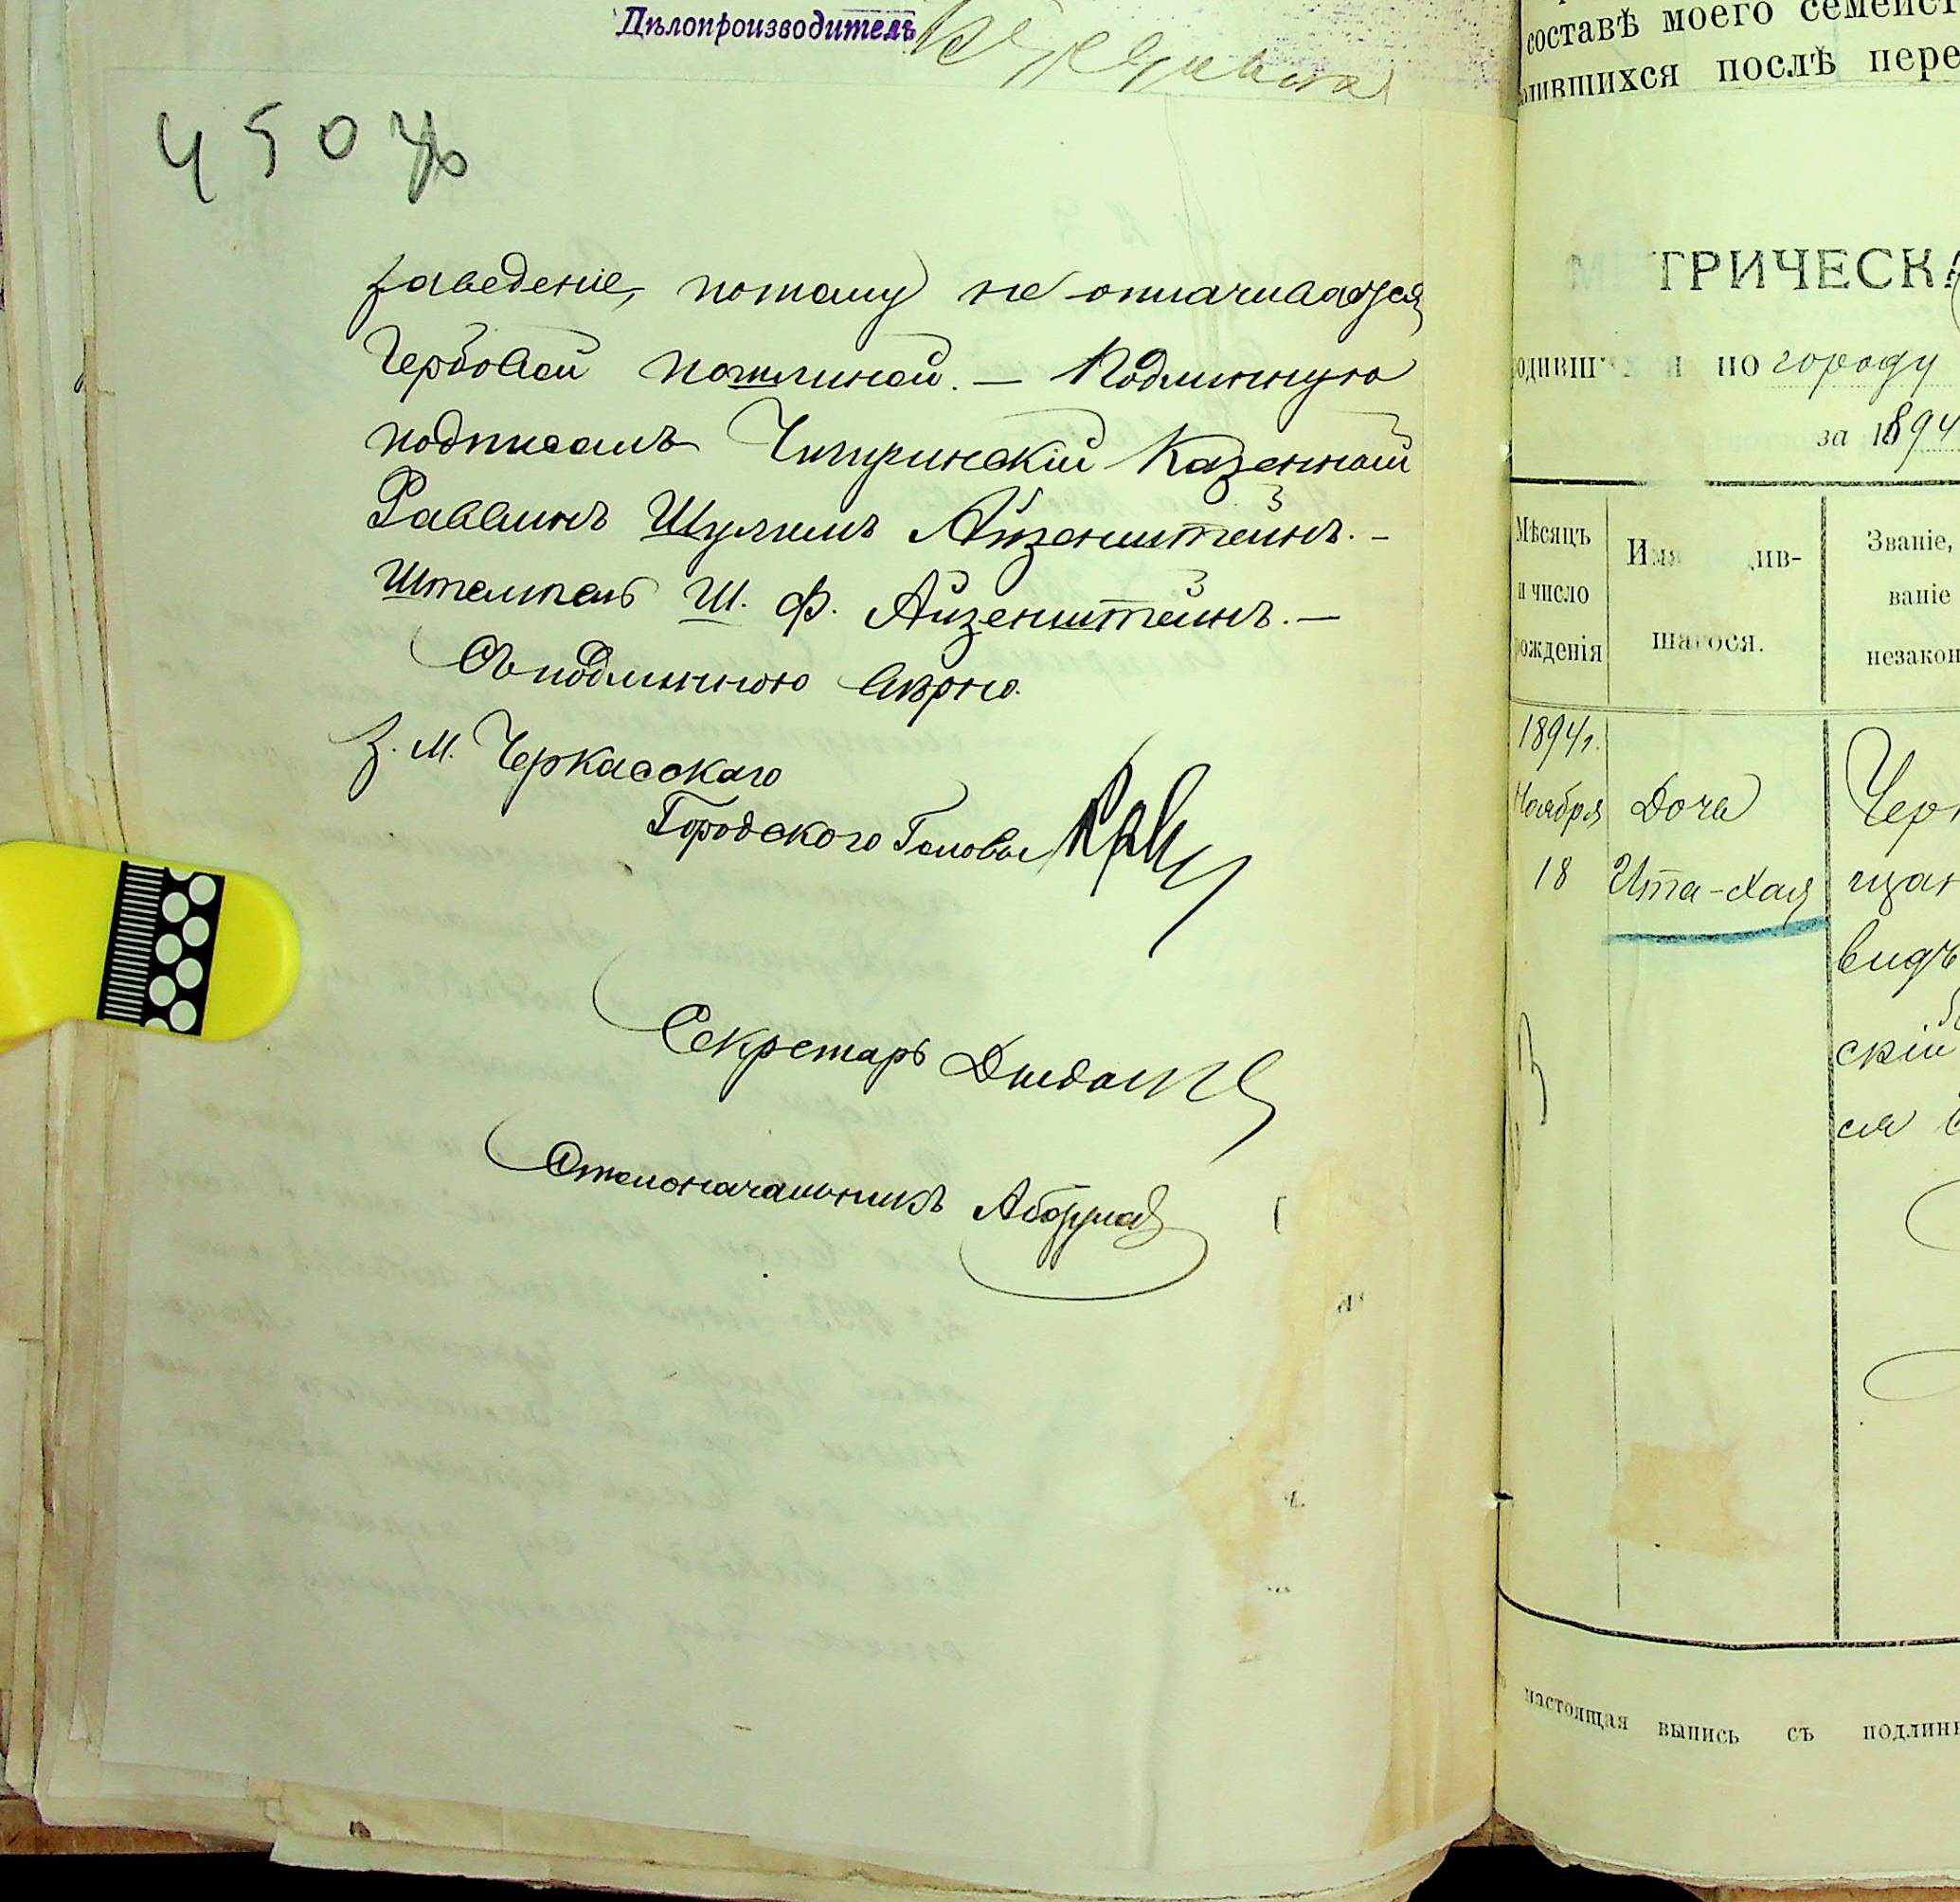 Дѣлопроизводитель
450
заведеніе, потому не оплачивается
Гербовой пошлиной. — Подлинную
подписалъ Чигиринскій Казенный
Раввинъ Шулимъ Айзенштейнъ. —
Штемпель Ш. Ф. Айзенштейнъ. —
Съ подлинною вѣрно.
З. М. Черкасского
Городского Головы
Секретарь
Столоначальникъ
составѣ моего семейст
лившихся послѣ пере
М ТРИЧЕСКА
одивш и по городу
за 1894
Мѣсяцъ
и число
рожденія
Имя див-
шагося.
Званіе,
ваніе
незакон
1894 г.
Ноября
18
Дочь
Ита-Хая
Черк
щан
видъ
скій
ся
настоящая выпись съ подлинн